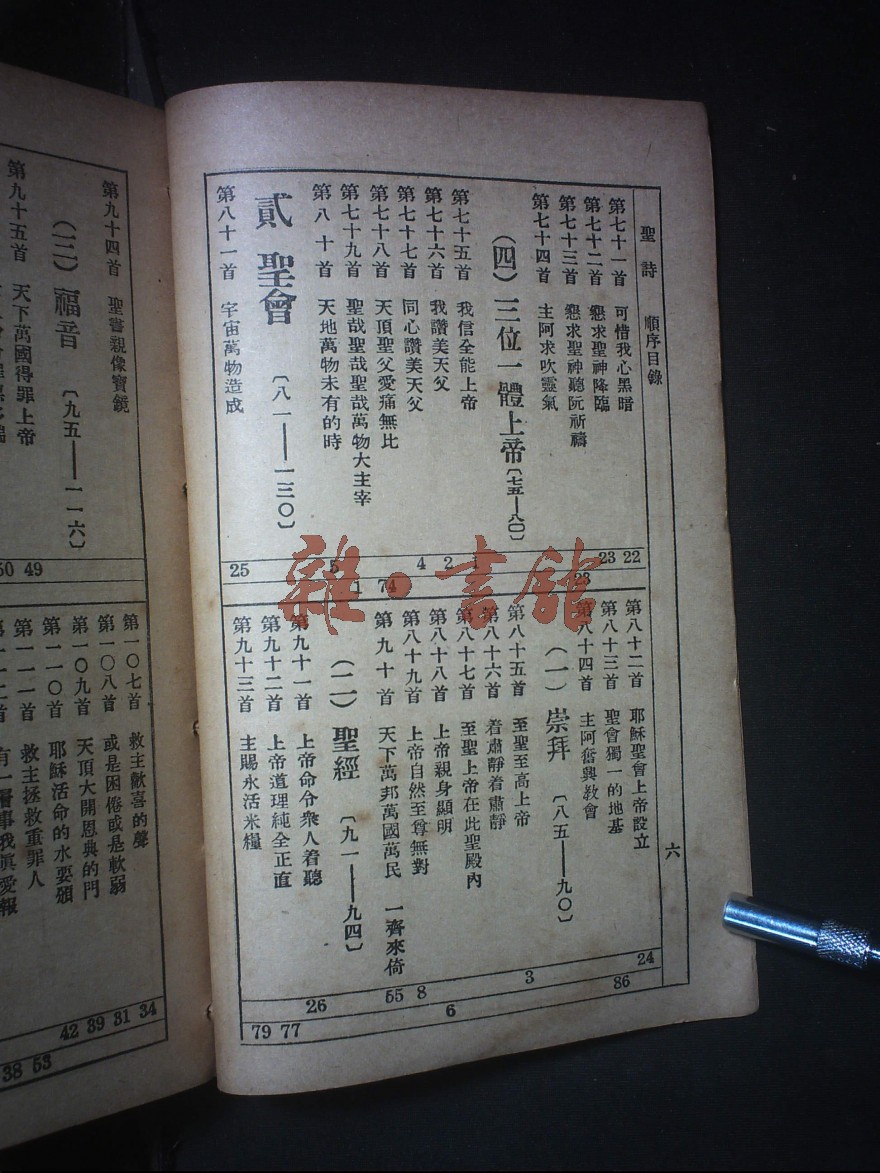 聖詩 順序目錄 六
第七十一首 可惜我心黑暗 22
第七十二首 懇求聖神降臨 23
第七十三首 懇求聖神聽阮祈禱
第七十四首 主阿求吹靈氣 23
(四) 三位一體上帝〔七五——八〇〕
第七十五首 我信全能上帝
第七十六首 我讚美天父 2
第七十七首 同心讚美天父 4
第七十八首 天頂聖父愛痛無比 74
第七十九首 聖哉聖哉聖哉萬物大主宰 1
第八十首 天地萬物未有的時 5
貳 聖會 〔八一——一三〇〕
第八十一首 宇宙萬物造成 25
第八十二首 耶穌聖會上帝設立 24
第八十三首 聖會獨一的地基 86
第八十四首 主阿奮興教會
(一) 崇拜 〔八五——九〇〕
第八十五首 至聖至高上帝 3
第八十六首 着肅靜着肅靜
第八十七首 至聖上帝在此聖殿內
第八十八首 上帝親身顯明 6
第八十九首 上帝自然至尊無對 8
第九十首 天下萬邦萬國萬民 一齊來倚 55
(二) 聖經 〔九一——九四〕
第九十一首 上帝命令衆人着聽 26
第九十二首 上帝道理純全正直 77
第九十三首 主賜永活米糧 79
第九十四首 聖書親像寶鏡
(三) 福音 〔九五——一一六〕
第九十五首 天下萬國得罪上帝 49
50
第一〇七首 救主歡喜的聲 34
第一〇八首 或是困倦或是軟弱 31
第一〇九首 天頂大開恩典的門 39
第一一〇首 耶穌活命的水要頒 42
第一一一首 救主拯救重罪人 53
有一層事我眞愛報 38
雜·書館